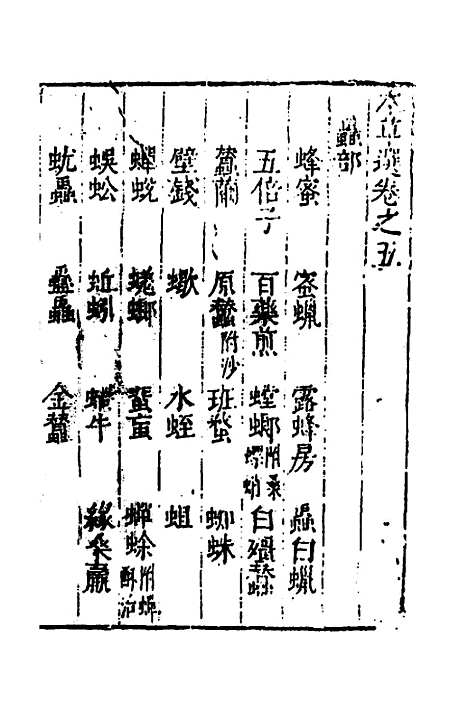 本草選卷之五
蟲部
蜂蜜 蜜蠟 露蜂房 蟲白蠟
五倍子 百藥煎 螳螂附桑螵蛸 白殭蠶
蠶繭 原蠶附沙 班蝥 蜘蛛
壁錢 蠍 水蛭 蛆
蟬蛻 蜣螂 蜚䖟 蟾蜍附蟾酥
蜈蚣 蚯蚓 蝸牛 緣桑蠃
蚘蟲 蠱蟲 金蠶